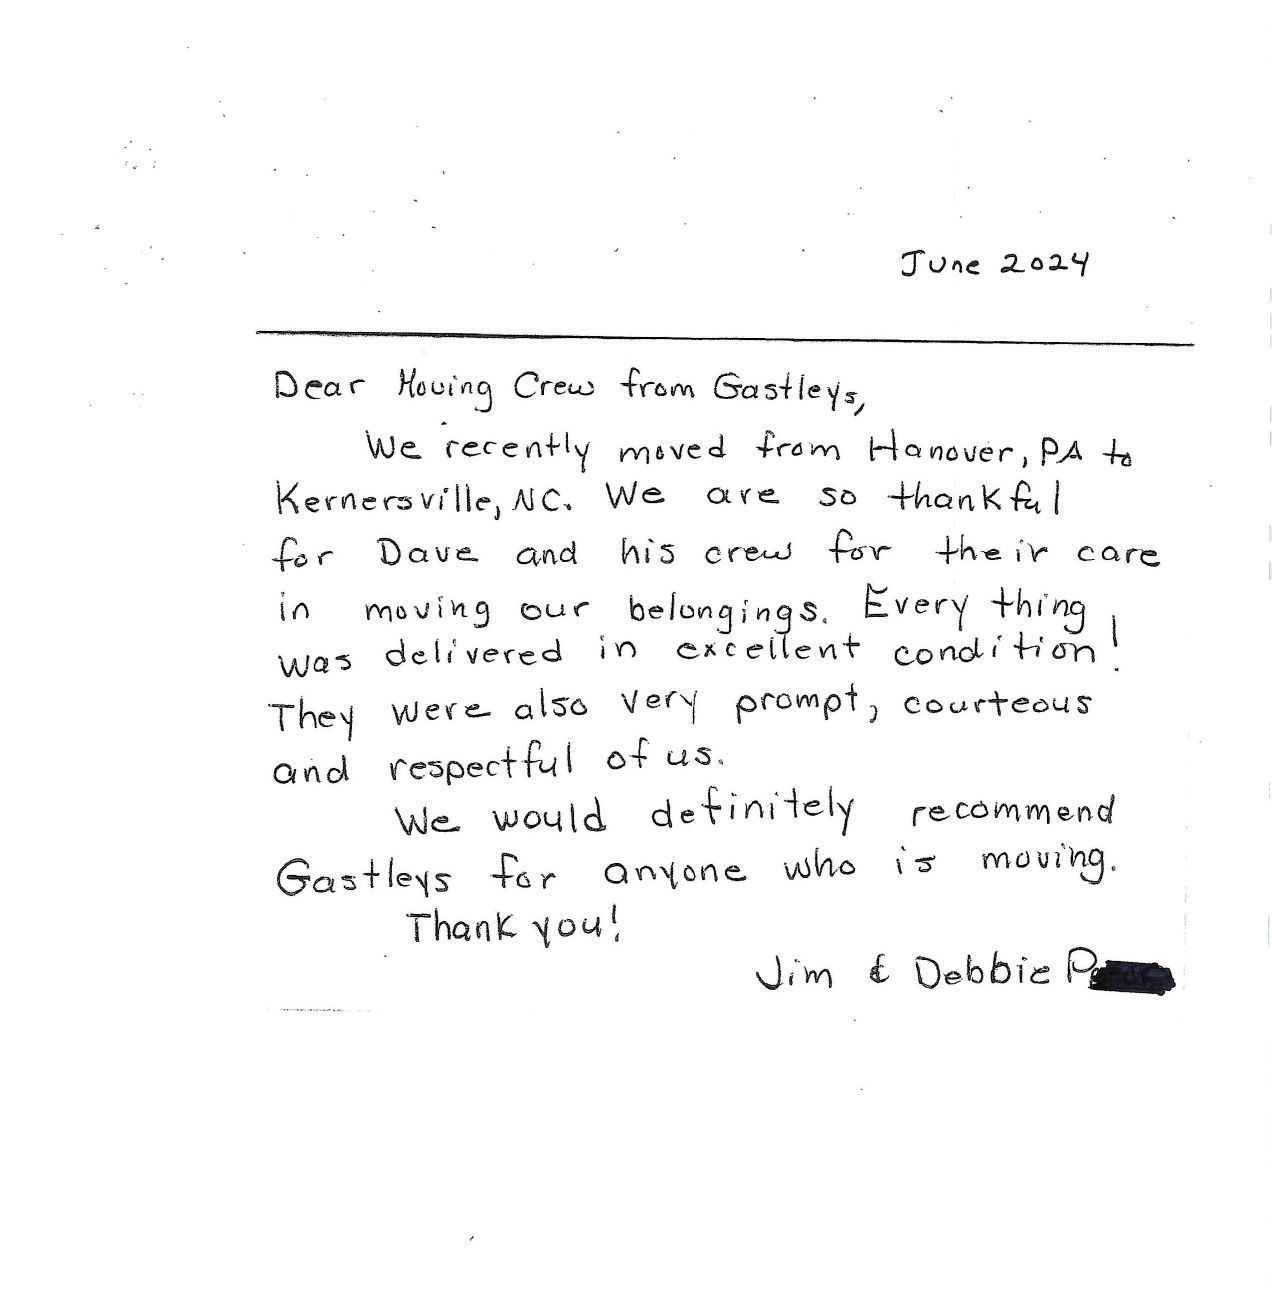 June 2024
Dear Moving Crew from Gastleys,
We recently moved from Hanover, PA to
Kernersville, NC. We are so thankful
for Dave and his crew for their care
in moving our belongings. Every thing
was delivered in excellent condition!
They were also very prompt, courteous
and respectful of us.
We would definitely recommend
Gastleys for anyone who is moving.
Thank you!
Jim & Debbie P